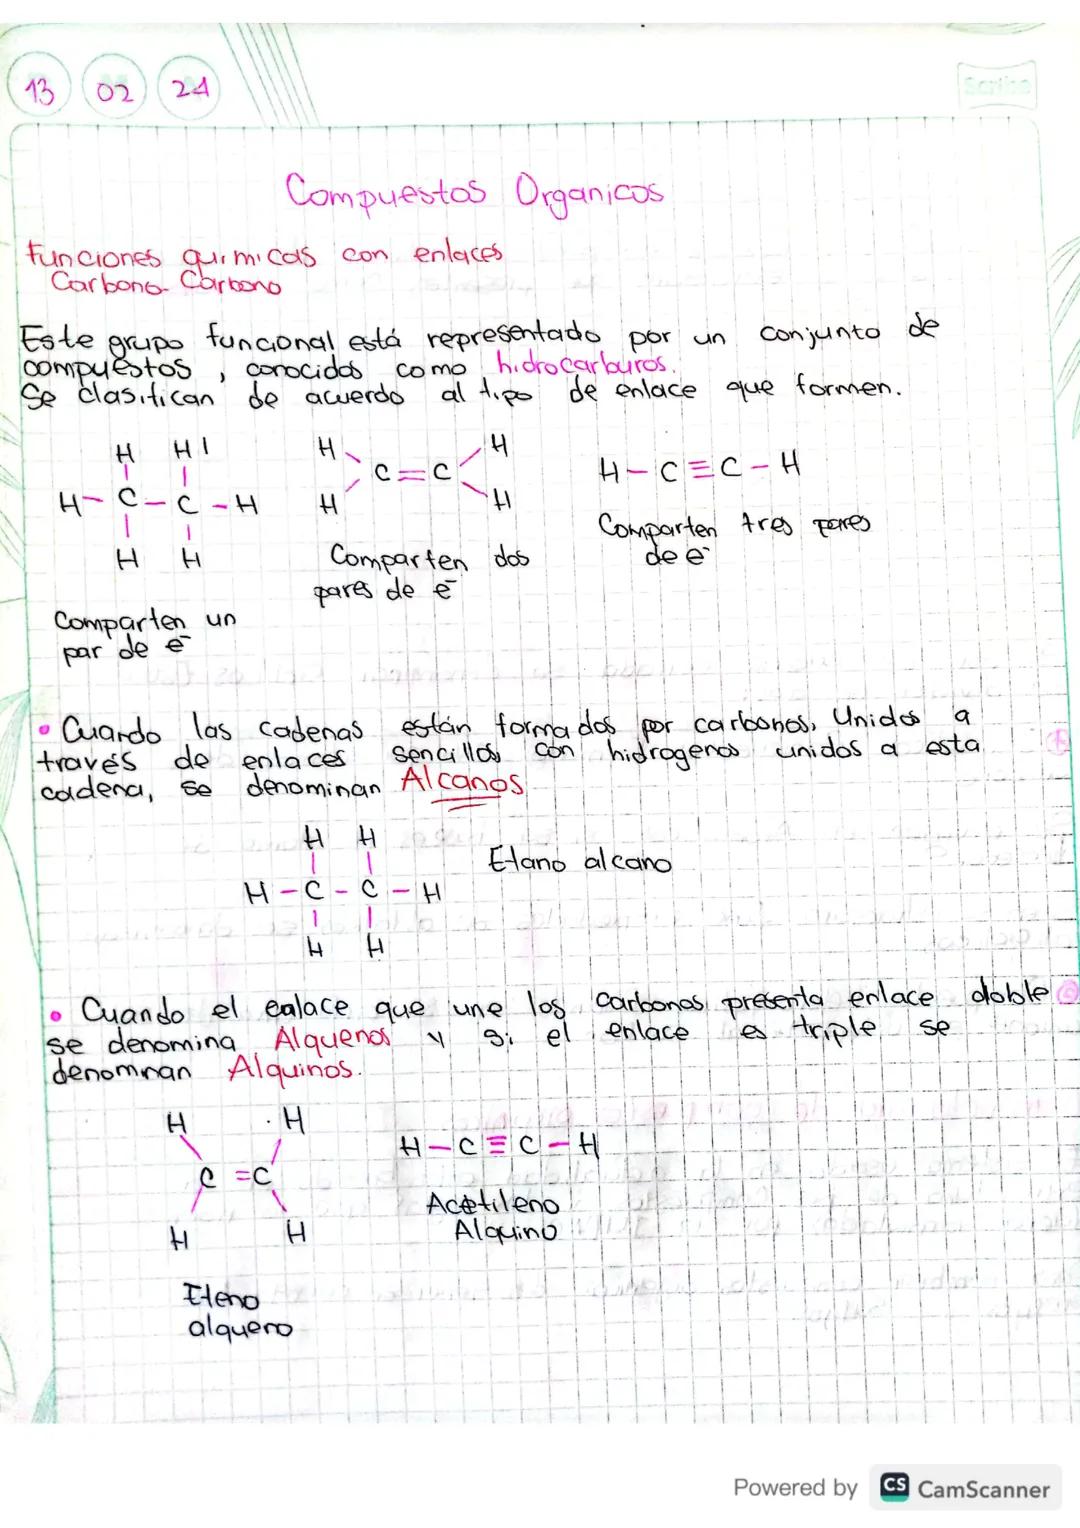 13 02 24
Scribe
Compuestos Organicos
Funciones quimicas con enlaces
Carbono-Carbono
Este grupo funcional está representado por un conjunto de
compuestos, conocidos como hidrocarburos.
Se clasifican de acuerdo al tipo de enlace que formen.
H H H H
H-C-C-H C=C H-C≡C-H
H H H H
Comparten un
par de e-
Comparten dos
pares de e-
Comparten tres pares
de e-
• Cuando las cadenas están formados por carbonos, Unidos a
través de enlaces sencillos con hidrogenos unidos a esta
cadena, se denominan Alcanos.
H H
H-C-C-H Etano alcano
H H
• Cuando el enlace que une los carbonos presenta enlace doble
se denomina Alquenos y si el enlace es triple se
denomnan Alquinos.
H H
C=C
H H
Eteno
alqueno
H-C≡C-H
Acetileno
Alquino
Powered by CS CamScanner